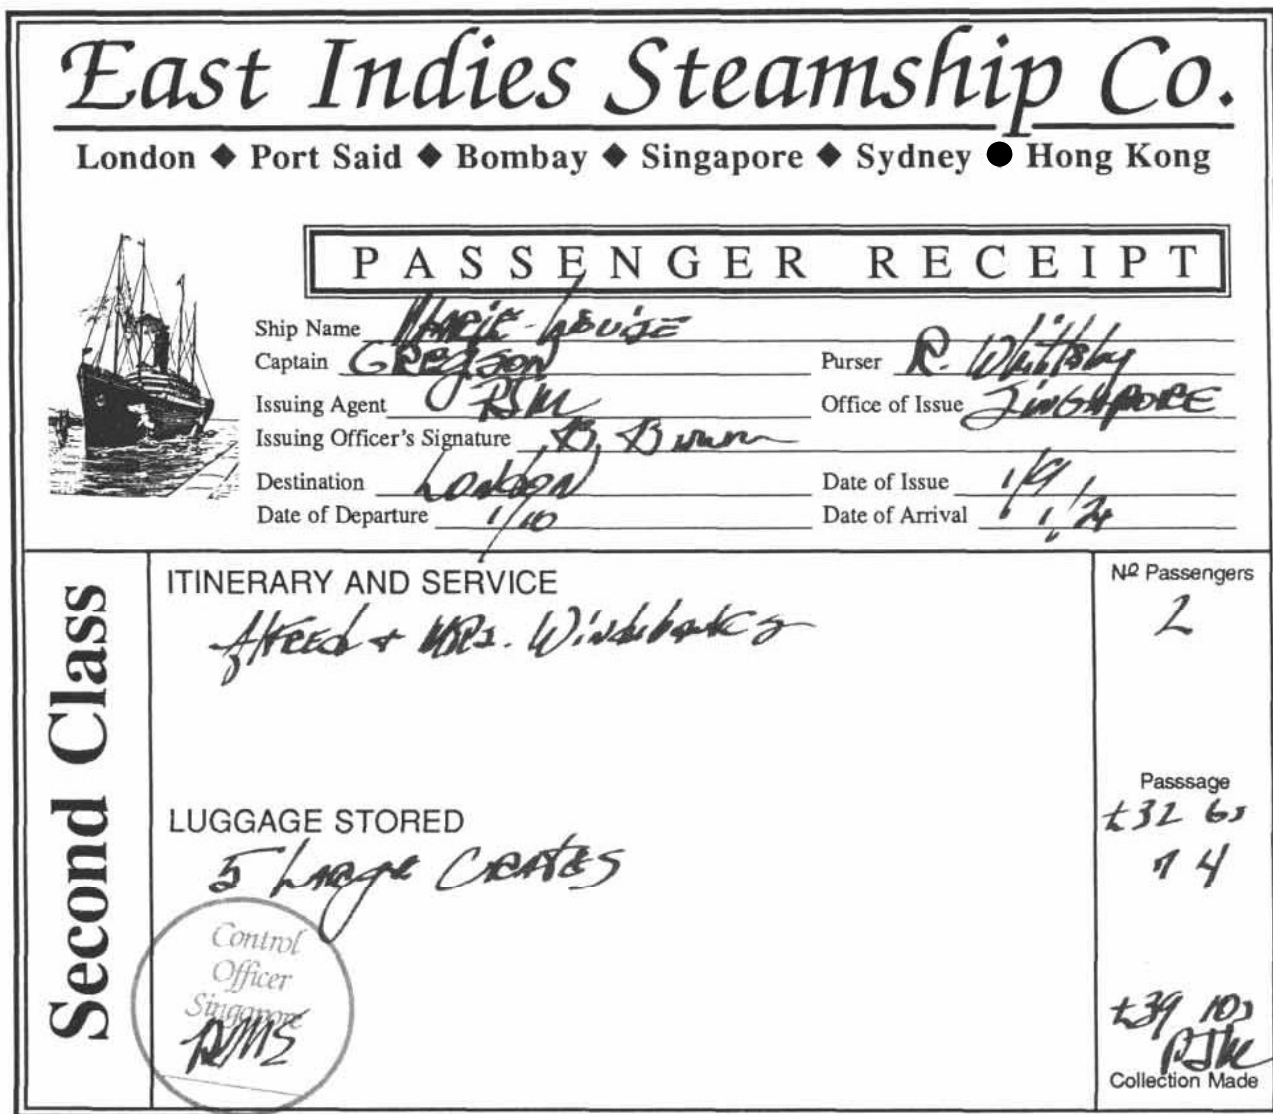 East Indies Steamship Co.
London ◆ Port Said ◆ Bombay ◆ Singapore ◆ Sydney ● Hong Kong
PASSENGER RECEIPT
Ship Name Marie-Louise
Captain Gregson Purser R. Whittsby
Issuing Agent RJM Office of Issue Singapore
Issuing Officer's Signature B. Brown
Destination London Date of Issue 1/9
Date of Departure 1/10 Date of Arrival 1/24
Second Class
ITINERARY AND SERVICE
Alfred + Mrs. Windebanks
Nº Passengers
2
LUGGAGE STORED
5 Large Crates
Passsage
£32 6s
7 4
Control
Officer
Singapore
£39 10s
Collection Made